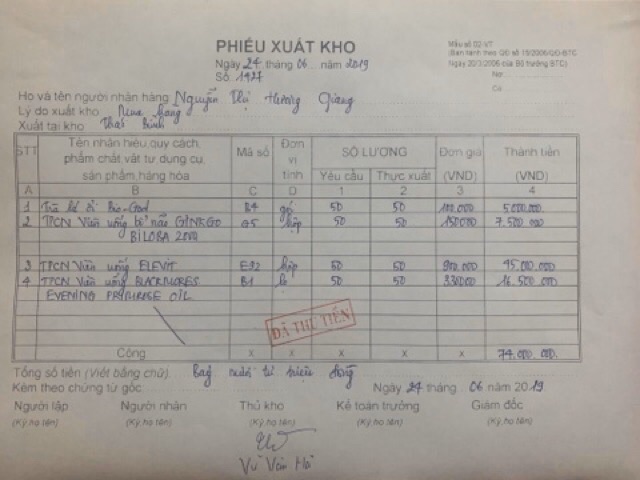 PHIẾU XUẤT KHO
Mẫu số 02-VT
(Ban hành theo QĐ số 15/2006/QĐ-BTC
Ngày 20/3/2006 của Bộ trưởng BTC)
Ngày 24 tháng 06 năm 2019
Số: 1927
Nợ
Có
Họ và tên người nhận hàng Nguyễn Thị Hương Giang
Lý do xuất kho Mua hàng
Xuất tại kho Thái Bình
STT Tên nhãn hiệu, quy cách, phẩm chất vật tư dụng cụ, sản phẩm, hàng hóa Mã số Đơn vị tính SỐ LƯỢNG Đơn giá (VND) Thành tiền (VND)
Yêu cầu Thực xuất
A B C D 1 2 3 4
1 Trà lá ổi Bio-God B4 gó 50 50 100.000 5.000.000
2 TPCN Viên uống bổ não GINKGO A5 hộp 50 50 150000 7.500.000
BILOBA 2000
3 TPCN Viên uống ELEVIT E92 hộp 50 50 900.000 45.000.000
4 TPCN Viên uống BLACKMORES B1 lọ 50 50 330000 16.500.000
EVENING PRIMROSE OIL
ĐÃ THU TIỀN
Cộng x x x x x 74.000.000.
Tổng số tiền (Viết bằng chữ): Bảy mươi tư triệu đồng
Kèm theo chứng từ gốc: Ngày 24 tháng 06 năm 2019
Người lập Người nhận Thủ kho Kế toán trưởng Giám đốc
(Ký, họ tên) (Ký, họ tên) (Ký, họ tên) (Ký, họ tên) (Ký, họ tên)
Vũ Văn Hà